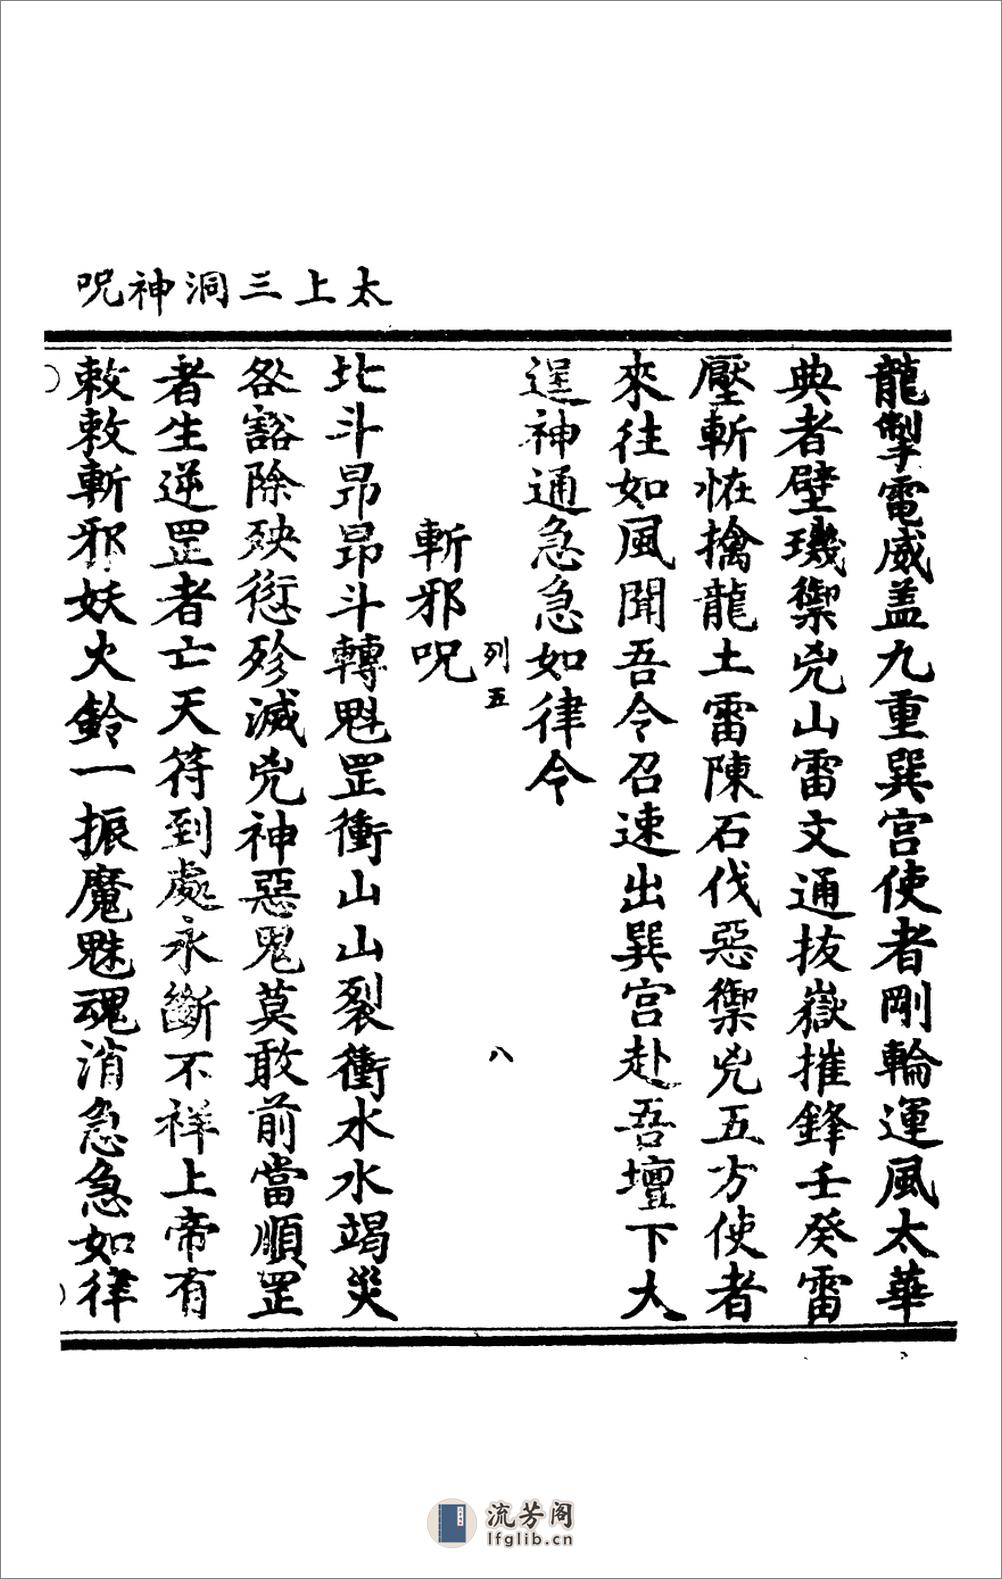 太上三洞神呪
龍掣電威盖九重巽宫使者剛輪運風太華
典者壁璣禦兇山雷文通抜嶽摧鋒壬癸雷
壓斬恠擒龍土雷陳石伐惡禦兇五方使者
來往如風聞吾令召速出巽宫赴吾壇下大
逞神通急急如律令
列五
八
斬邪呪
北斗昂昂斗轉魁罡衝山山裂衝水水竭災
咎豁除殃愆殄滅兇神惡鬼莫敢前當順罡
者生逆罡者亡天符到處永斷不祥上帝有
敕敕斬邪妖火鈴一振魔魅魂消急急如律
流芳阁
lfglib.cn